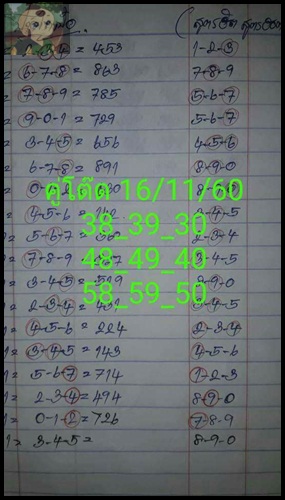 3-4 = 453 1-2-3
6-7-8 = 863 7-8-9
7-8-9 = 785 5-6-7
9-0-1 = 729 5-6-7
3-4-5 = 656 4-5-6
6-7-8 = 891 8-9-0
คู่โต๊ด 16/11/60
4-5-6 = 3-4-5
38_39_30
5-6-7 = 2-3-4
7-8-9 = 3-4-5
48_49_40
3-4-5 = 8-9-0
58_59_50
2-3-4 = 3-4-5
4-5-6 = 224 2-3-4
3-4-5 = 143 4-5-6
5-6-7 = 714 1-2-3
2-3-4 = 494 8-9-0
0-1-2 = 726 7-8-9
3-4-5 = 8-9-0